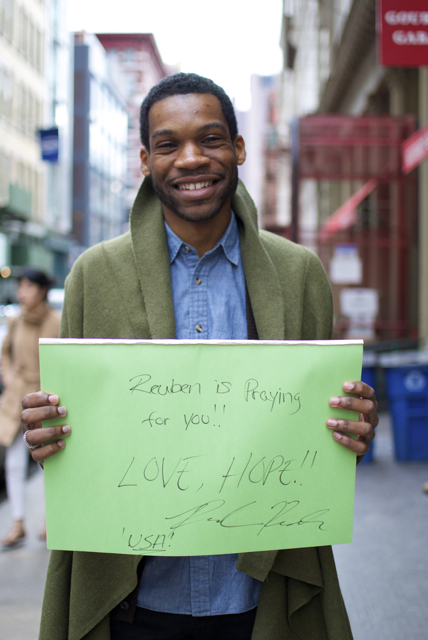 GOUR
GARA
Reuben is Praying
for you!!
LOVE, HOPE!!
'USA!